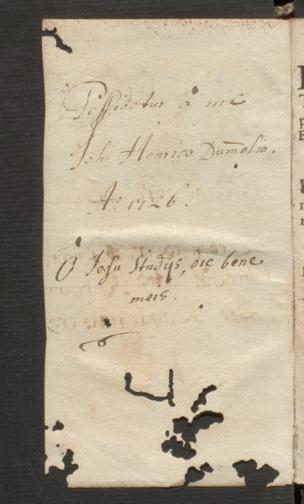 Possidetur à me
Joh. Henrico Dum̄elio.
Aō 1726.
O Jesu studijs, dic bene
meis.